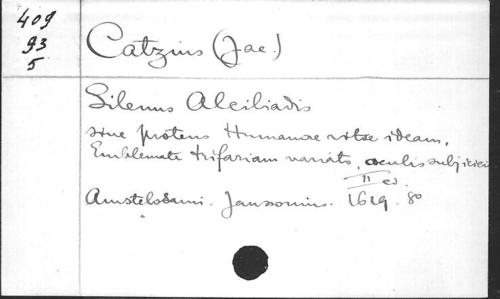 409
93
5
Catzius (Jac.)
Silenus Alcibiadis
sive proteus Humanae vitae ideam,
Emblemate trifariam variato, oculis subjiciens
II ed.
Amstelodami. Janssonius. 1619. 8o